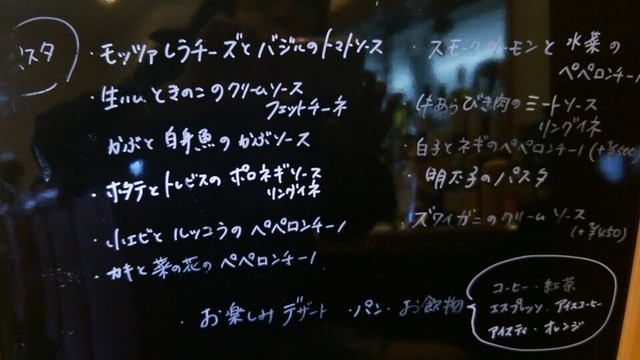 パスタ
・モッツァレラチーズとバジルのトマトソース
・生ハムときのこのクリームソース
フェットチーネ
かぶと白身魚のかぶソース
・ホタテとトレビスのポロネギソース
リングイネ
・小エビとルッコラのペペロンチーノ
・カキと菜の花のペペロンチーノ
・スモークサーモンと水菜の
ペペロンチーノ
・牛あらびき肉のミートソース
リングイネ
・白子とネギのペペロンチーノ(+¥500)
・明太子のパスタ
・ズワイガニのクリームソース
(+¥450)
・お楽しみデザート ・パン・お飲物
コーヒー・紅茶
エスプレッソ・アイスコーヒー
アイスティ・オレンジ